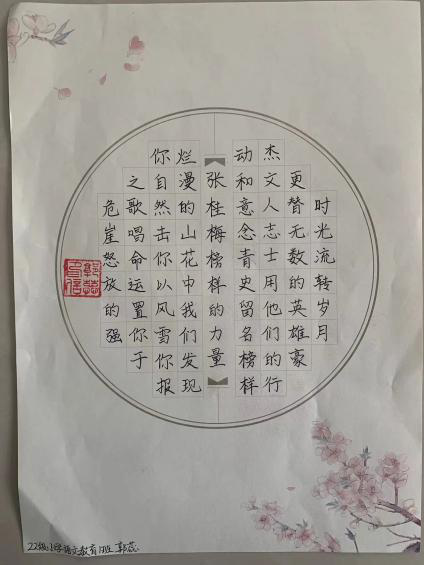 时光流转岁月
更替无数的英雄豪
杰文人志士用他们的行
动和意念青史留名榜样
张桂梅榜样的力量
烂漫的山花中我们发现
你自然击你以风雪你报
之歌唱命运置你于
危崖怒放的强
郭蕊印信
22级小学语文教育1班 郭蕊